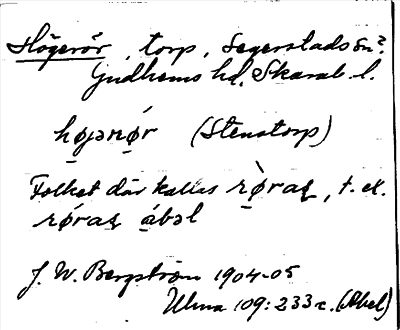 Högerör, torp, Segerstads sn?
Gudhems hd, Skarab. l.
højənǿr (Stenstorp)
Folket där kallas rø̀raʂ, t. ex.
rǿraʂ ábəl
J. W. Bergström 1904-05
Ulma 109: 233 c. (Abel)